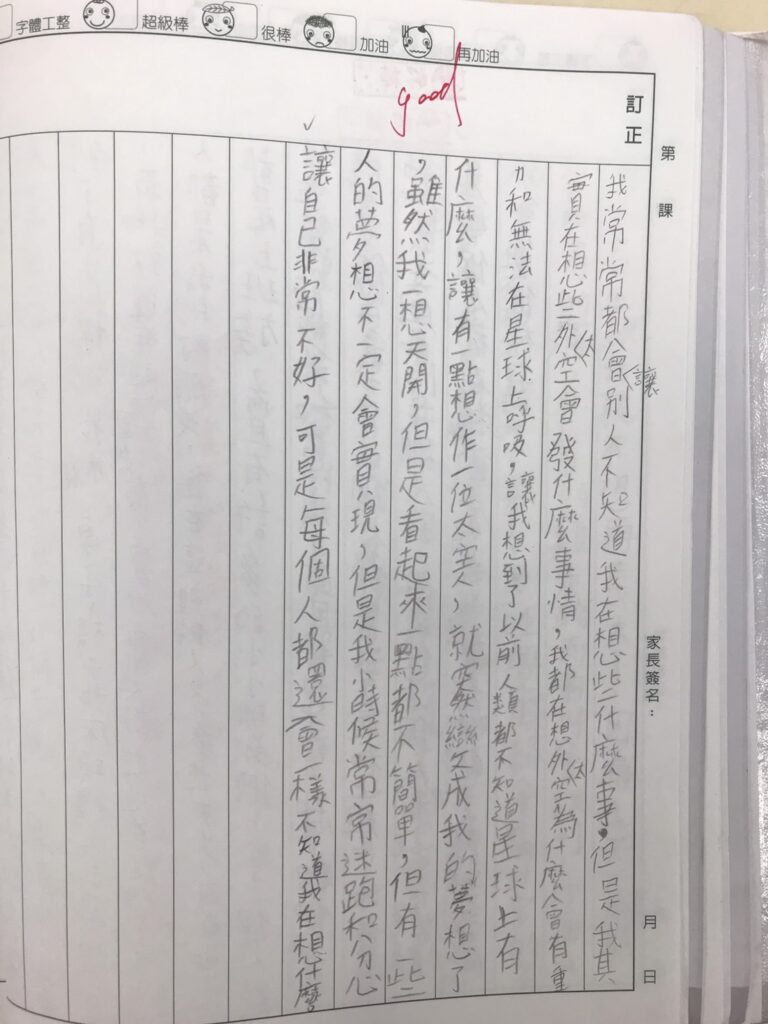 字體工整
超級棒
很棒
加油
再加油
good
訂正
第 課
家長簽名：
月 日
我常常都會讓別人不知道我在想些什麼事，但是我其
實在想些外太空會發什麼事情，我都在想外太空為什麼會有重
力和無法在星球上呼吸，讓我想到了以前人類都不知道星球上有
什麼，讓有一點想作一位太空人，就突然變成我的夢想了
，雖然我一想天開，但是看起來一點都不簡單，但有一些
人的夢想不一定會實現，但是我小時候常常迷跑和分心
讓自己非常不好，可是每個人都還會一樣不知道我在想什麼